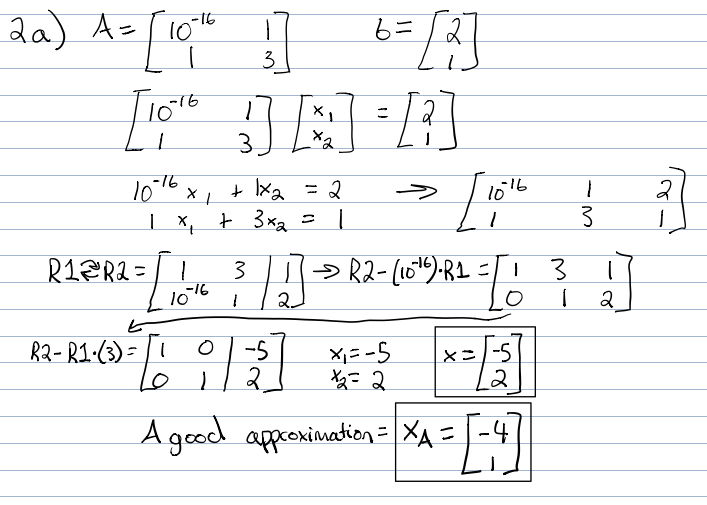 2a) A = [10^-16 1; 1 3] b = [2; 1]
[10^-16 1; 1 3] [x₁; x₂] = [2; 1]
10^-16 x₁ + 1x₂ = 2 → [10^-16 1 2; 1 3 1]
1 x₁ + 3x₂ = 1
R1⇄R2 = [1 3 | 1; 10^-16 1 | 2] → R2-(10^-16)·R1 = [1 3 1; 0 1 2]
R2-R1·(3) = [1 0 | -5; 0 1 | 2] x₁=-5 x₂=2 x = [-5; 2]
A good approximation = x_A = [-4; 1]